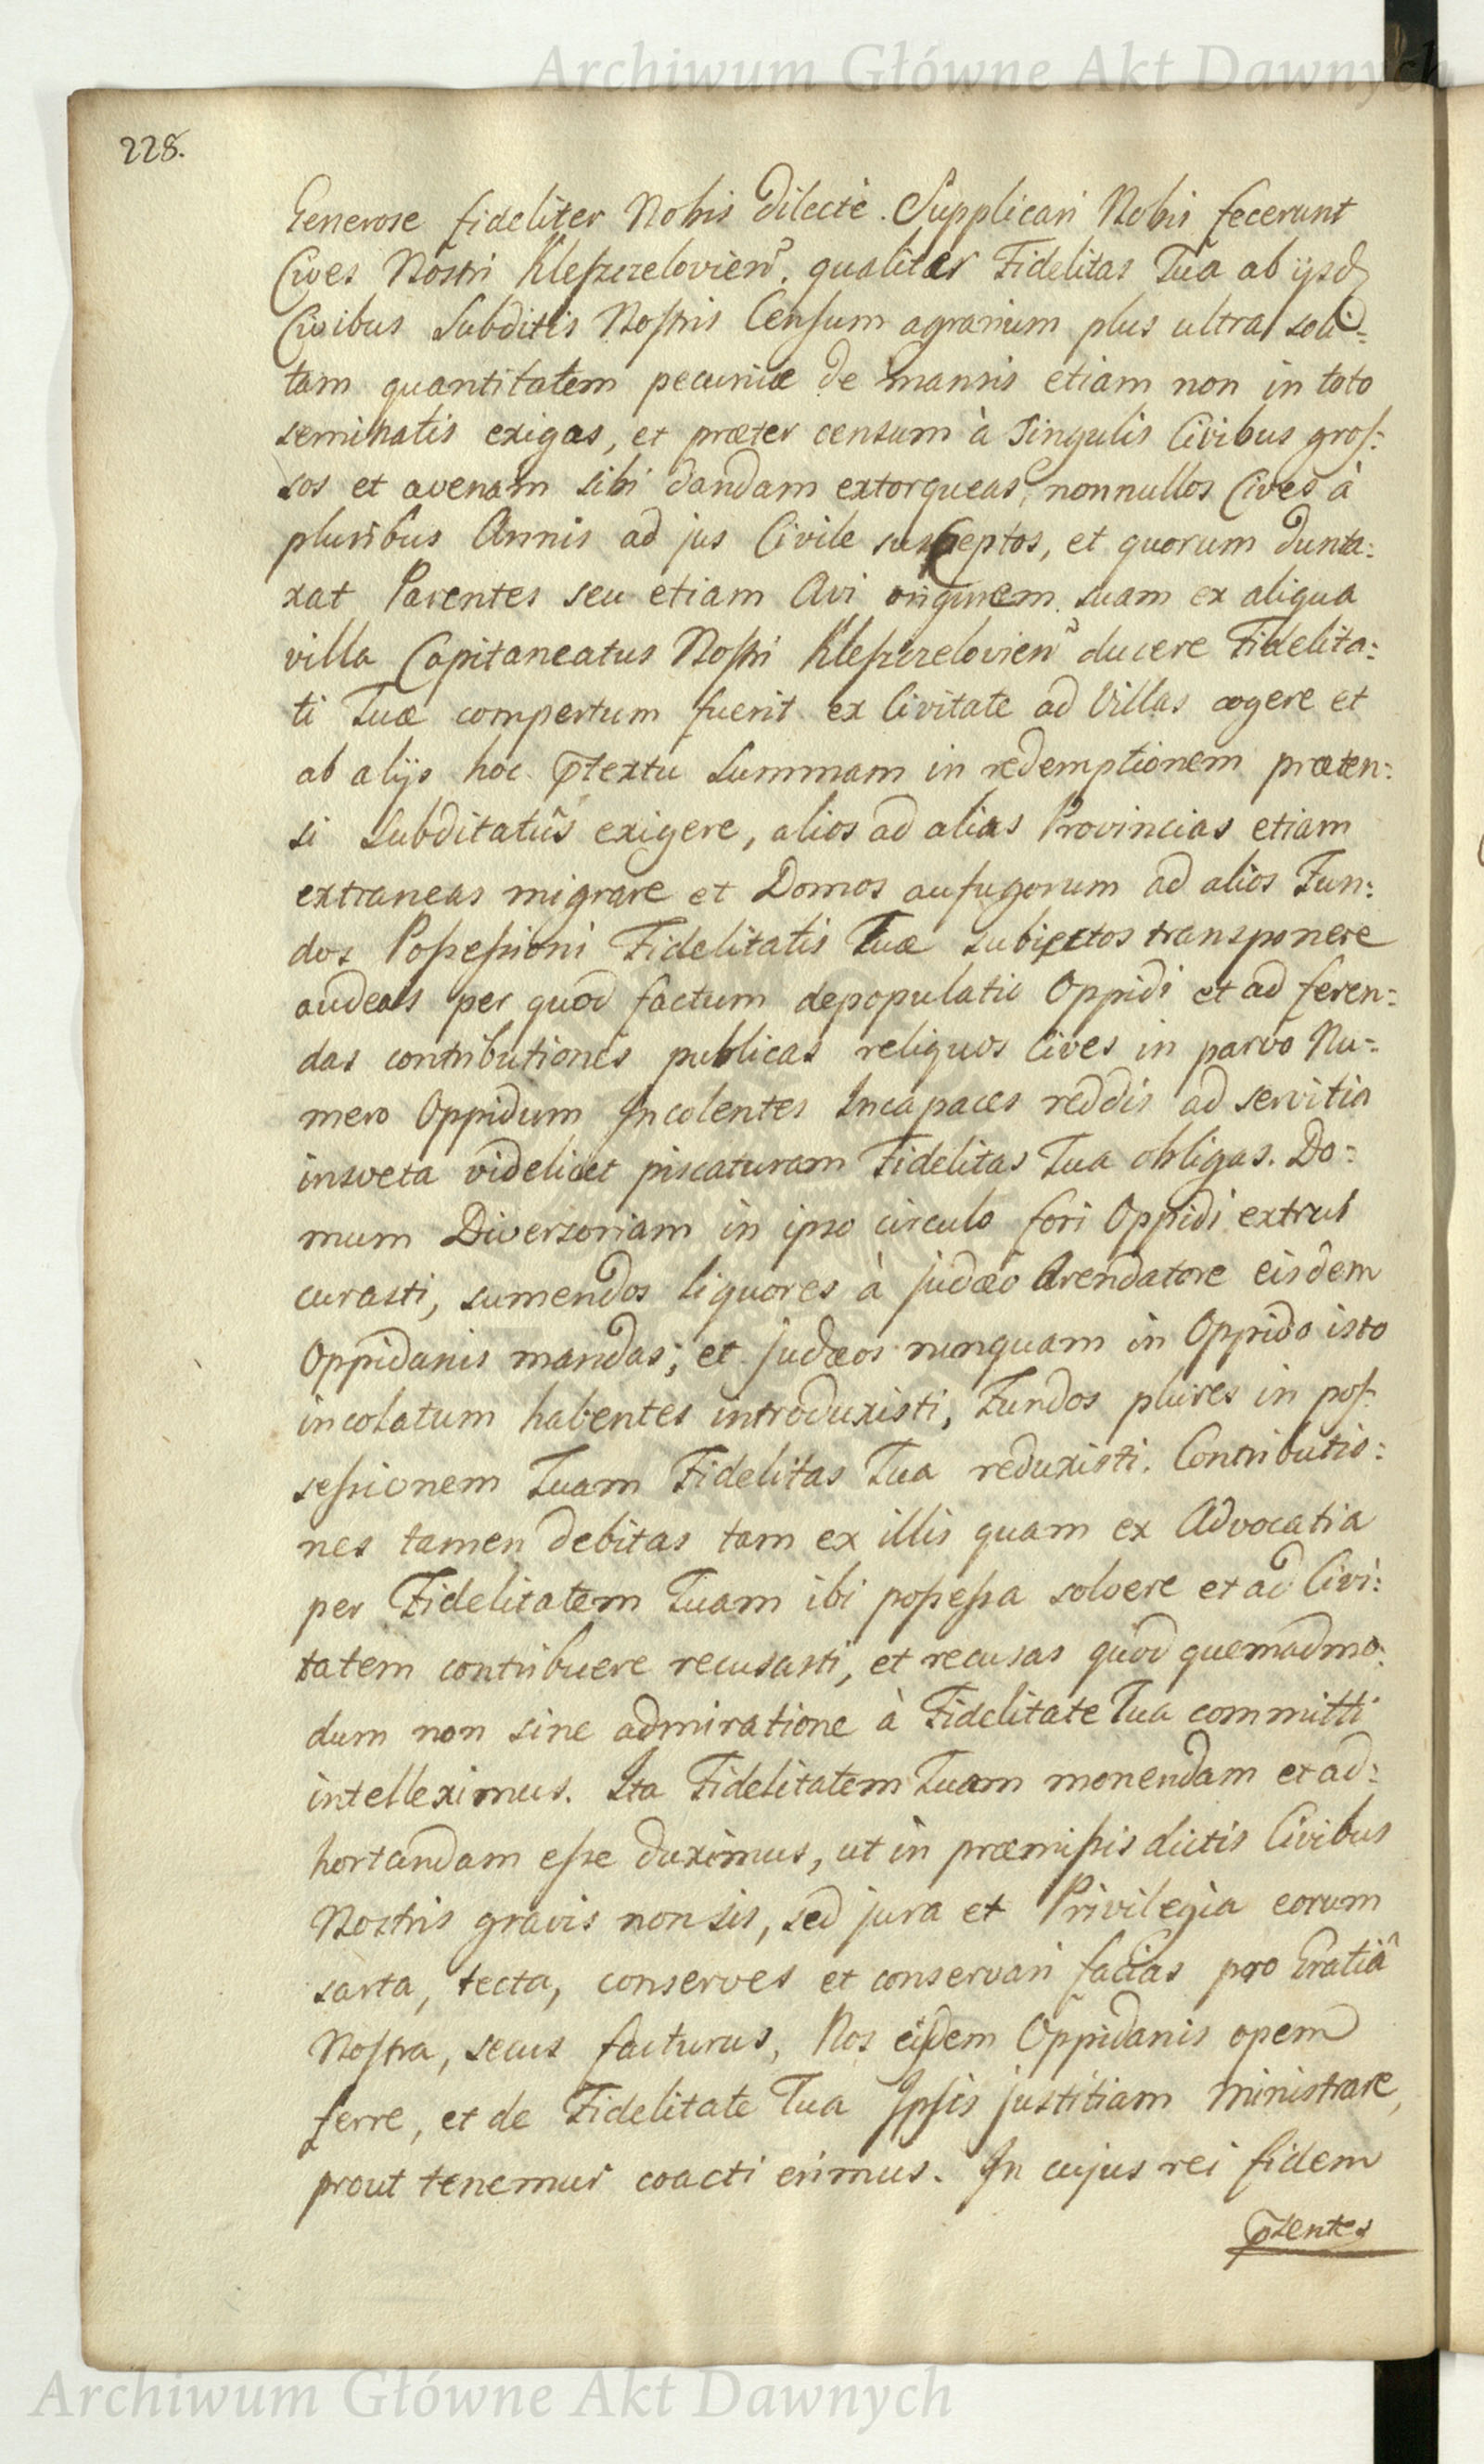 Archiwum Główne Akt Dawnych
228.
Generose fideliter Nobis dilecte. Supplicari Nobis fecerunt
Cives Nostri Kleszczelovien. qualiter Fidelitas Tua ab ijsd
Civibus Subditis Nostris Censum agrarium plus ultra soli-
tam quantitatem pecuniæ de mansis etiam non in toto
seminatis exigas, et præter censum à singulis Civibus gros:
sos et avenam sibi dandam extorqueas, nonnullos Cives à
pluribus Annis ad jus Civile susceptos, et quorum dunta:
xat Parentes seu etiam Avi originem suam ex aliqua
villa Capitaneatus Nostri Kleszczelovien ducere Fidelita:
ti Tuæ compertum fuerit ex Civitate ad Villas cogere et
ab alijs hoc ptextu summam in redemptionem præten:
si subditatûs exigere, alios ad alias Provincias etiam
extraneas migrare et Domos aufugorum ad alios Fun:
dos Possessioni Fidelitatis Tuæ subiectos transponere
audeas per quod factum depopulatio Oppidi et ad feren:
das contributiones publicas reliquos Cives in parvo Nu-
mero Oppidum Incolentes Incapaces reddis ad servitia
insveta videlicet piscaturam Fidelitas Tua obligas. Do:
mum Diversoriam in ipso circulo fori Oppidi extrui
curasti, sumendos liquores à judæo Arendatore eisdem
Oppidanis mandas; et Judæos nunquam in Oppido isto
incolatum habentes introduxisti, Fundos plures in pos-
sessionem Tuam Fidelitas Tua reduxisti. Contributio:
nes tamen debitas tam ex illis quam ex Advocatia
per Fidelitatem Tuam ibi possessa solvere et ad Civi:
tatem contribuere recusasti, et recusas quod quemadmo:
dum non sine admiratione à Fidelitate Tua committi
intelleximus. Ita Fidelitatem Tuam monendam et ad:
hortandam esse duximus, ut in præmissis dictis Civibus
Nostris gravis non sis, sed jura et Privilegia eorum
sarta, tecta, conserves et conservari facias pro Gratiâ
Nostra, secus facturus, Nos eisdem Oppidanis opem
ferre, et de Fidelitate Tua Ipsis justitiam ministrare,
prout tenemur coacti erimus. In cujus rei fidem
psentes
Archiwum Główne Akt Dawnych